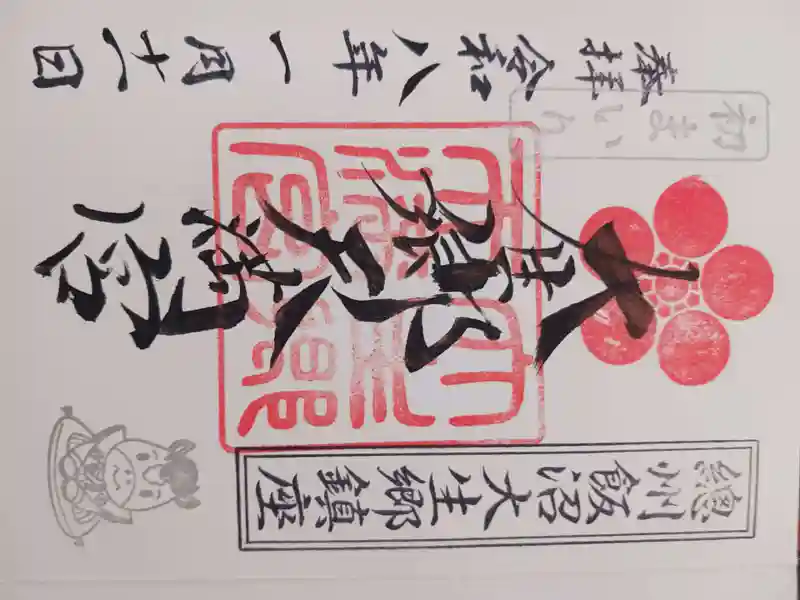 總州飯沼大生郷鎮座
大生郷天満宮
初まいり
奉拝 令和八年一月十一日